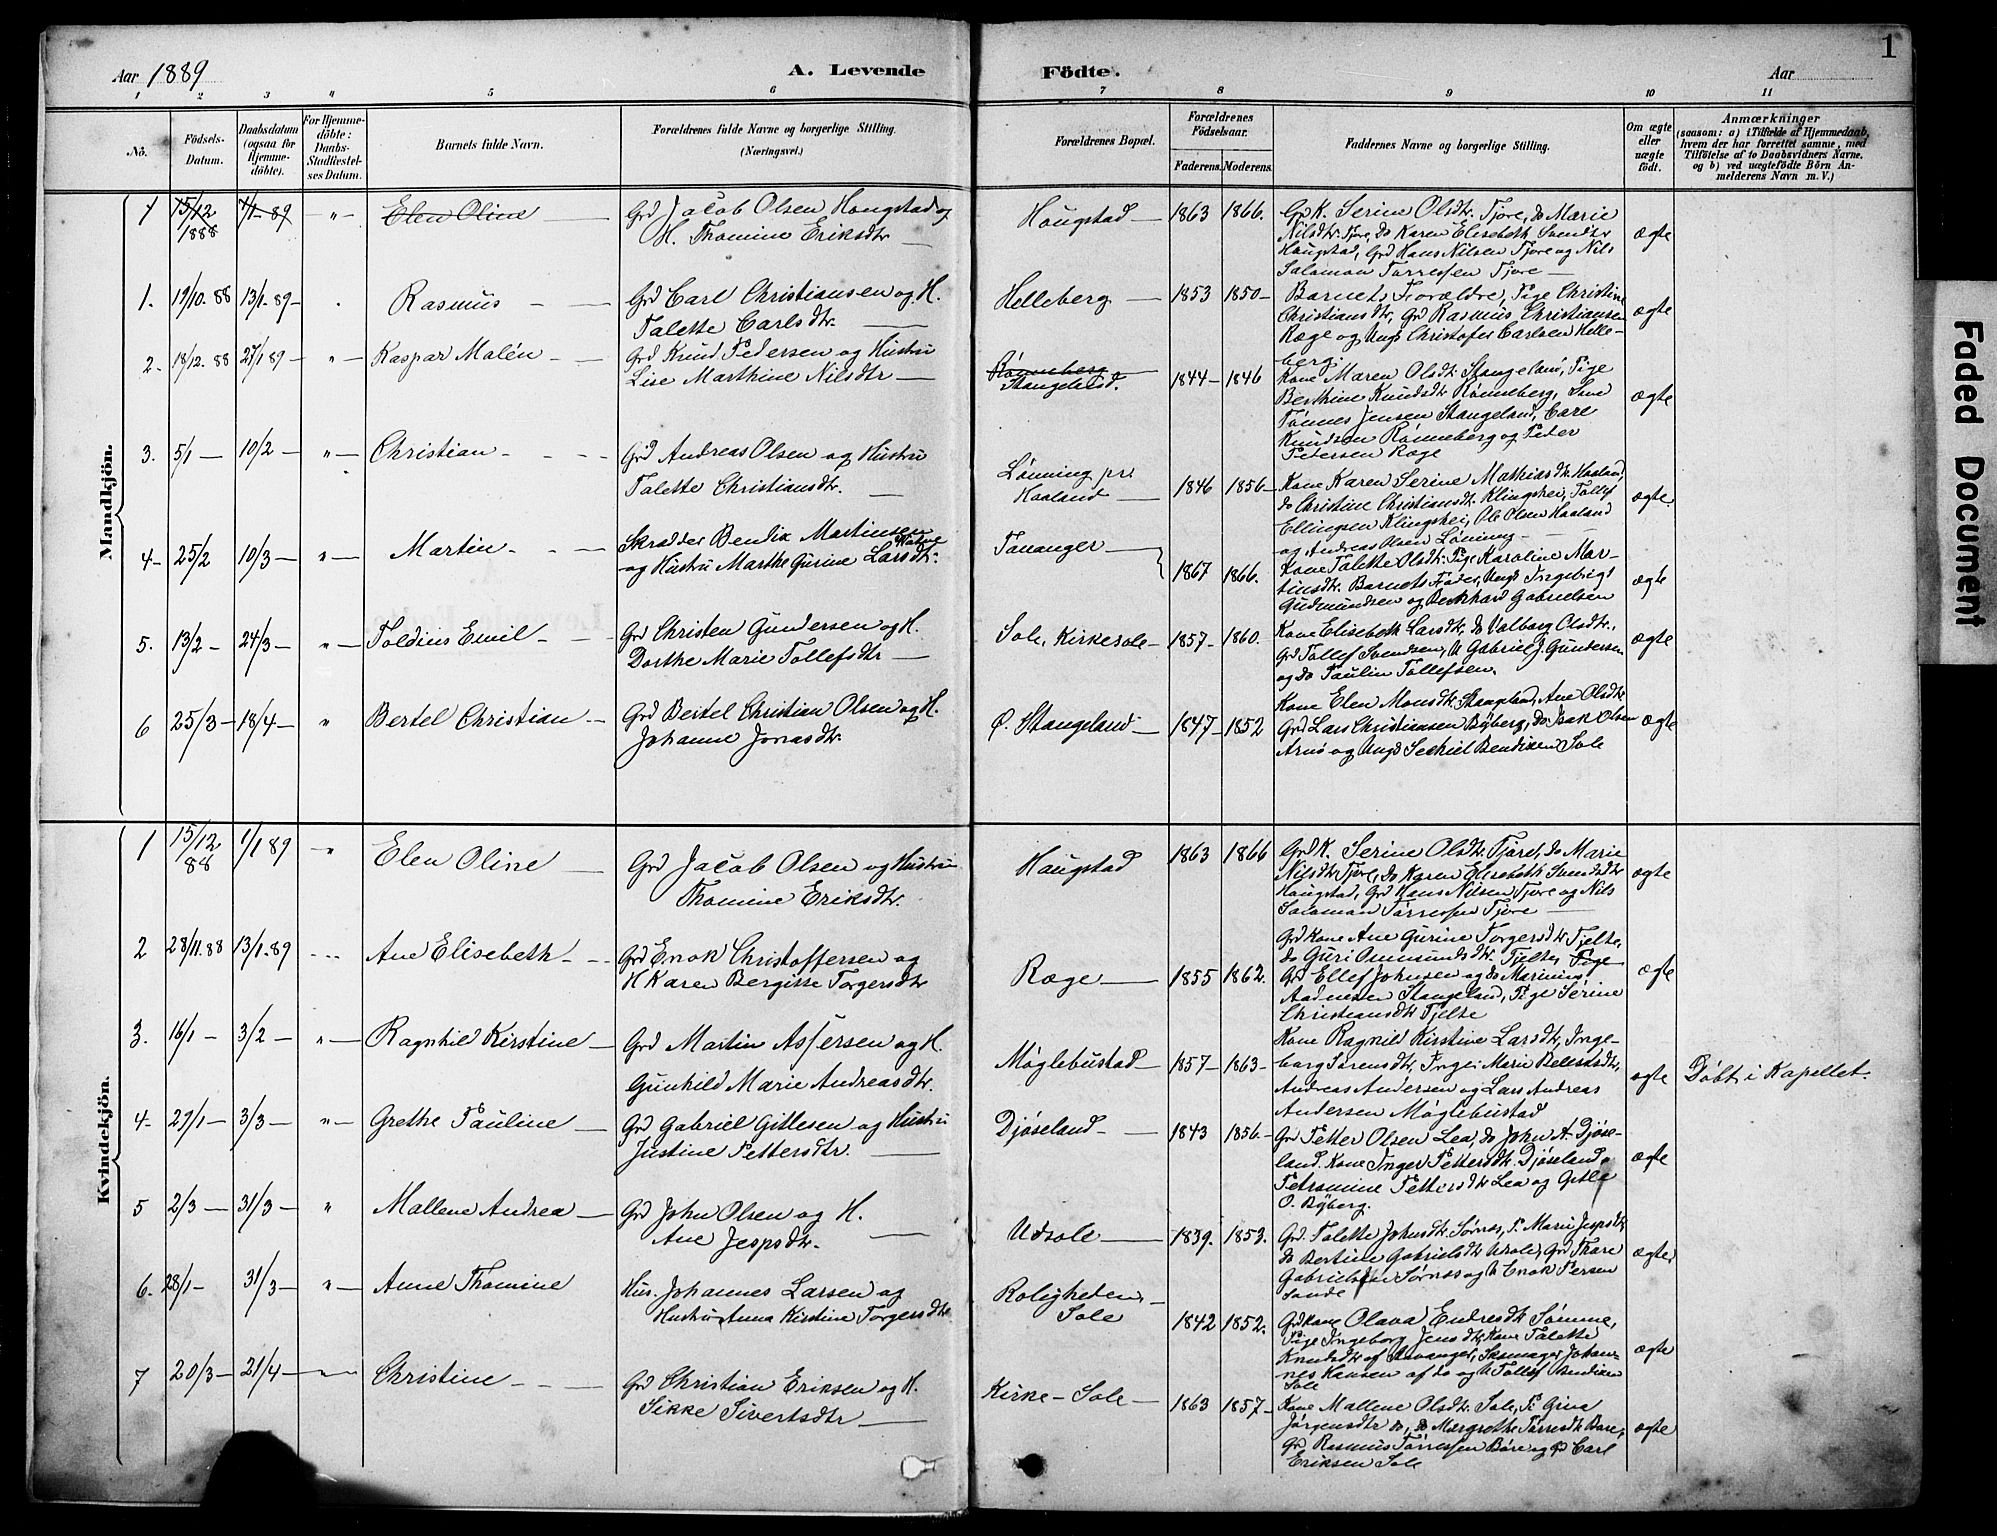 Aar 1889
A. Levende
Födte.
Aar
1
1 2 3 " 5 6 7 8 9 10 11
No.
Födsels-
Datum.
Daabsdatum
(ogsaa for
Hjemme-
döbte).
For Hjemme-
döbte:
Daabs-
Stadfæstel-
ses Datum.
Barnets fulde Navn.
Forældrenes fulde Navne og borgerlige Stilling.
(Næringsvei.)
Forældrenes Bopæl.
Forældrenes
Födselsaar.
Faderens. Moderens.
Faddernes Navne og borgerlige Stilling.
Om ægte
eller
uægte
födt.
Anmærkninger
(saasom: a) i Tilfælde af Hjemmedaab,
hvem der har forrettet samme, med
Tilföielse af to Daabsvidners Navne,
og b) ved uægtefödte Börn An-
melderens Navn m. V.)
Mandkjön.
1 15/12 1888 1/1-89 - " - Elen Oline
Grd Jacob Olsen Haugstad og
H. Thomine Eriksdtr
Haugstad 1863 1866.
Grd K. Serine Olsdtr. Tjore, do Marie
Nilsdtr. Tjore, do Karen Elisebeth Svendsdtr
Haugstad, Grd Hans Nilsen Tjore og Nils
Salamon Tørressen Tjore
ægte
1. 19/10-88 13/1-89 " Rasmus
Grd Carl Christiansen og H.
Talette Carlsdtr.
Helleberg 1853 1850
Barnets Forældre, Pige Christine
Christiansdtr, Grd Rasmus Christiansen
Ræge og Ungk Christofer Carlsen Helle-
berg.
ægte
2. 18/12.88 27/1 89 " Kaspar Malén
Grd Knud Pedersen og Hustru
Lise Marthine Nilsdtr
Rønneberg
Stangeland.
1844 - 1846
Kone Maren Olsdtr. Stangeland, Pige
Berthine Knudsdtr Rønneberg,
Tønnes Jensen Stangeland, Carl
Knudsen Rønneberg og Peder
Petersen Ræge
ægte
3. 5/1 10/2 " Christian
Grd Andreas Olsen og Hustru
Talette Christiansdtr.
Lønning pr.
Haaland
1846 1856
Kone Karen Serine Mathiasdtr. Haaland,
do Christine Christiansdtr. Klingshei, Tollef
Ellingsen Klingshei, Ole Olsen Haaland
og Andreas Olsen Lønning
ægte.
4 25/2 10/3 " Martin
Skrædder Bendix Martinsen
og Hustru Marthe Gurine Larsdtr.
Tananger
1867 1866.
Kone Talette Olsdtr. Pige Karoline Mar-
tinsdtr. Barnets Fader, Ungk Ingebrigt
Gudmundsen og Berthard Gabrielsen
ægte
5. 13/2 24/3 " Toldius Emil
Grd Christen Gundersen og H.
Dorthe Marie Tollefsdtr
Sole, Kirkesole 1857 1860.
Kone Elisebeth Larsdtr, do Valborg Olsdtr.,
Grd Tollef Svendsen, U Gabriel J. Gundersen
og do Paulin Tollefsen.
ægte
6 25/3 18/4 " Bertel Christian
Grd Bertel Christian Olsen og H.
Johanne Jonasdtr.
Ø. Stangeland 1847 1852
Kone Elen Monsdtr. Stangeland, Ane Olsdtr
Grd Lars Christiansen Bøyberg, do Isak Olsen
Arnø og Ungk Sechiel Bendixen Sole
ægte
Kvindekjön.
1 15/12 88 1/1 89 " Elen Oline
Grd Jacob Olsen og Hustru
Thomine Eriksdtr.
Haugstad 1863 1866
Grd K. Serine Olsdtr. Tjore, do Marie
Nilsdtr. Tjore, do Karen Elisebeth Svendsdtr
Haugstad, Grd Hans Nilsen Tjore og Nils
Salamon Tørressen Tjore
ægte
2 28/11.88 13/1.89 Ane Elisebeth
Grd Enok Christoffersen og
H Karen Bergitte Torgersdtr
Ræge 1855 1862.
Grd Kone Ane Gurine Torgersdtr Tjelte,
do Guri Omundsdtr. Tjelte, Pige
Grd Ellef Johnsen og do Marinius
Aadnesen Stangeland, Pige Serine
Christiansdtr Tjelte
ægte
3. 16/1 3/2 " Ragnhil Kirstine
Grd Martin Assersen og H.
Gunhild Marie Andreasdtr.
Møglebustad 1857 1863
Kone Ragnild Kirstine Larsdtr, Inge-
borg Sørensdtr, Inger Marie
Andreas Andersen og Lars Andreas
Andersen Møglebustad
ægte Döbt i Kapellet.
4 27/1 3/3 " Grethe Pauline
Grd Gabriel Gitlesen og Hustru
Justine Pettersdtr.
Djøseland 1843 1856
Gr Petter Olsen Lea, do John A. Djøse-
land. Kone Inger Pettersdtr. Djøseland,
Petramine Pettersdtr Lea og Gitle
O. Bøyberg.
ægte
5 2/3 31/3 " Mallene Andrea
Grd John Olsen og H.
Ane Jespsdtr.
Udsole 1839. 1853.
Grd. Talette Johnsdtr. Sørnæs, P. Marie Jespsdtr
do Bertine Gabrielsdtr Usole, Grd Thore
Gabrielsen Sørnæs og U Enok Persen
Sande
ægte
6. 28/1 31/3 " Anne Thomine
Hus. Johannes Larsen og
Hustru Anna Kirstine Torgersdtr
Roligheden
Sole
1842 1852.
Grd Kone Olava Endresdtr Sømme,
Pige Ingeborg Jensdtr, Kone Talette
Knudsdtr af Stavanger, Skomager Johan-
nes Hansen af do og U Tollef Bendixen
Sole
ægte
7 20/3 21/4 " Christine
Grd Christian Eriksen og H.
Sikke Sivertsdtr
Kirke-Sole 1863 1857
Kone Mallene Olsdtr. Sole, P.
Jørgensdtr do, do Margrethe Tørresdtr Bore,
Grd Rasmus Tørressen Bore og Grd Carl
Eriksen Sole
ægte
Faded Document